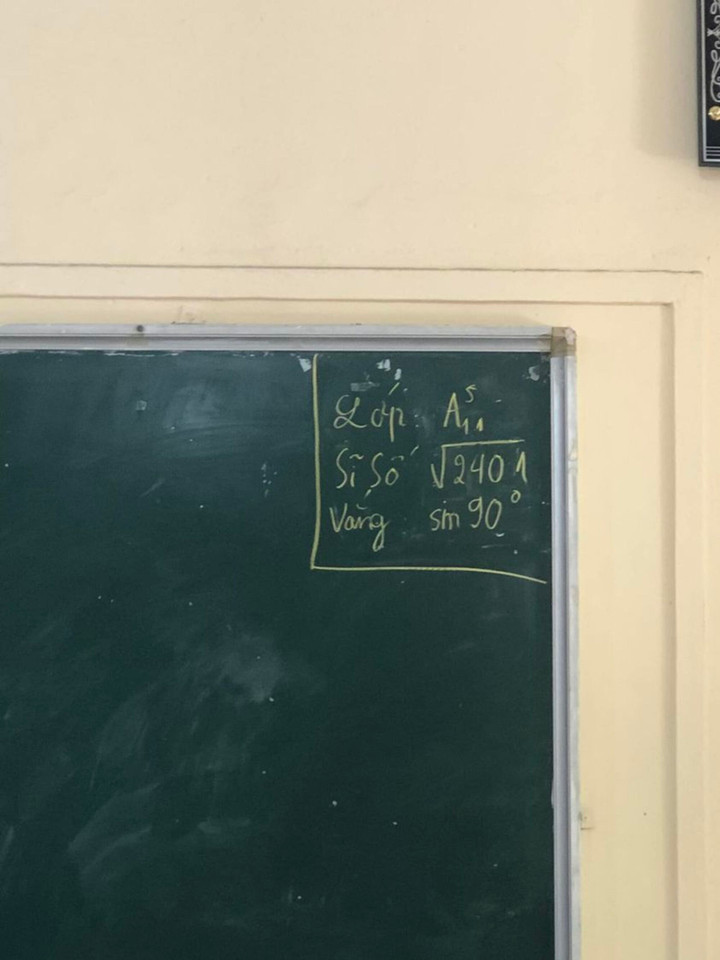 Lớp: A₁₁⁵
Sĩ Số √2401
Vắng: sin 90°